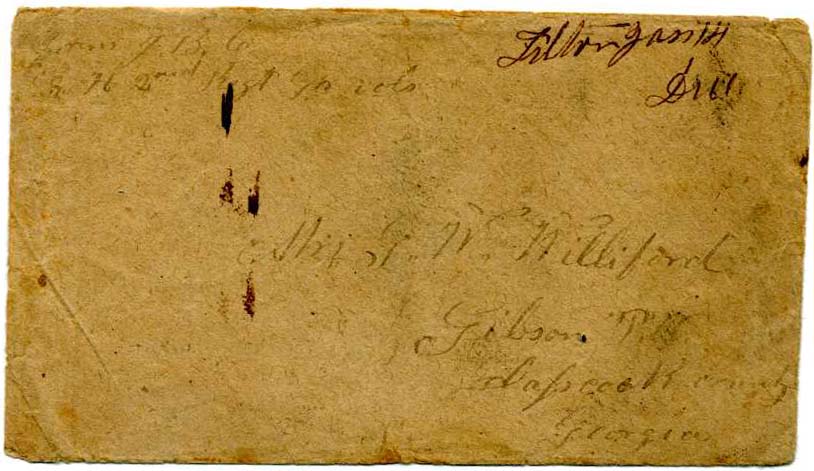 From J. B. G
Co H 2nd Regt Ga vols
Tilton Ga 14
Due 10
Miss W. Williford
Gibson P.O
Glasscock county
Georgia